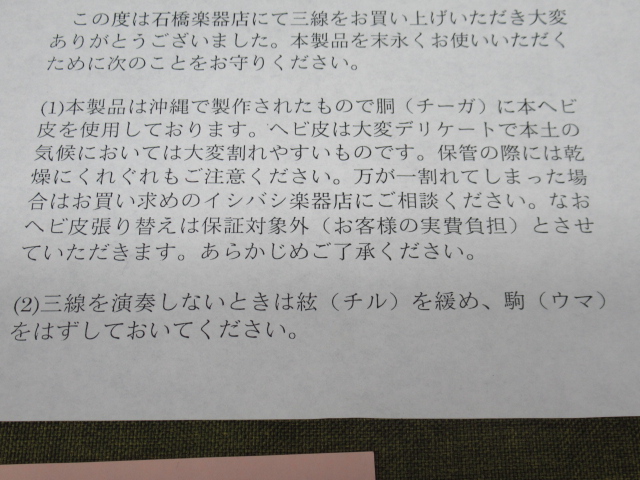 この度は石橋楽器店にて三線をお買い上げいただき大変
ありがとうございました。本製品を末永くお使いいただく
ために次のことをお守りください。
(1)本製品は沖縄で製作されたもので胴（チーガ）に本ヘビ
皮を使用しております。ヘビ皮は大変デリケートで本土の
気候においては大変割れやすいものです。保管の際には乾
燥にくれぐれもご注意ください。万が一割れてしまった場
合はお買い求めのイシバシ楽器店にご相談ください。なお
ヘビ皮張り替えは保証対象外（お客様の実費負担）とさせ
ていただきます。あらかじめご了承ください。
(2)三線を演奏しないときは絃（チル）を緩め、駒（ウマ）
をはずしておいてください。